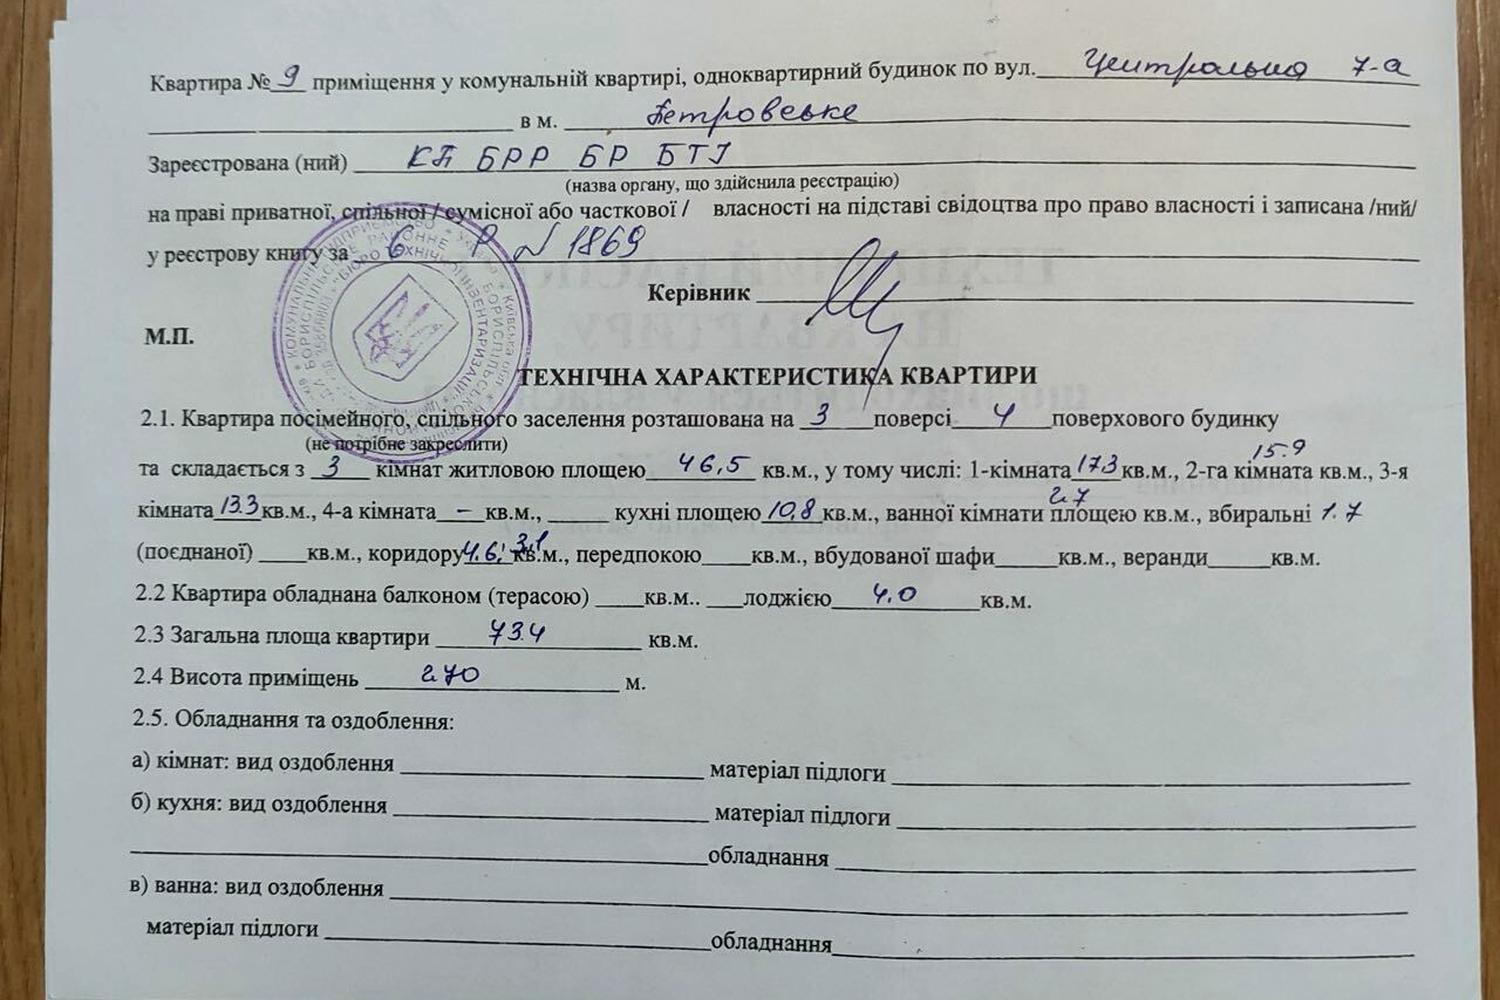 Квартира № 9 приміщення у комунальній квартирі, одноквартирний будинок по вул. Центральна 7-а
в м. Петровське
Зареєстрована (ний) КП БРР БР БТІ
(назва органу, що здійснила реєстрацію)
на праві приватної, спільної / сумісної або часткової / власності на підставі свідоцтва про право власності і записана /ний/
у реєстрову книгу за 6 Р N 1869
Керівник
М.П.
ТЕХНІЧНА ХАРАКТЕРИСТИКА КВАРТИРИ
2.1. Квартира посімейного, спільного заселення розташована на 3 поверсі 4 поверхового будинку
(не потрібне закреслити)
та складається з 3 кімнат житловою площею 46,5 кв.м., у тому числі: 1-кімната 17.3 кв.м., 2-га кімната 15.9 кв.м., 3-я
кімната 13.3 кв.м., 4-а кімната – кв.м., кухні площею 10,8 кв.м., ванної кімнати площею 2.7 кв.м., вбиральні 1.7
(поєднаної) кв.м., коридору 4.6; 3.1 кв.м., передпокою кв.м., вбудованої шафи кв.м., веранди кв.м.
2.2 Квартира обладнана балконом (терасою) кв.м.. лоджією 4.0 кв.м.
2.3 Загальна площа квартири 73.4 кв.м.
2.4 Висота приміщень 2.70 м.
2.5. Обладнання та оздоблення:
а) кімнат: вид оздоблення матеріал підлоги
б) кухня: вид оздоблення матеріал підлоги
обладнання
в) ванна: вид оздоблення
матеріал підлоги обладнання